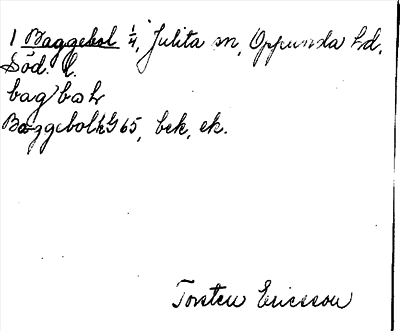 1 Baggebol 1/4, Julita sn, Oppunda hd,
Söd. l.
bag/bəlr
Baggebol hG 65, bek, ek.
Torsten Ericsson